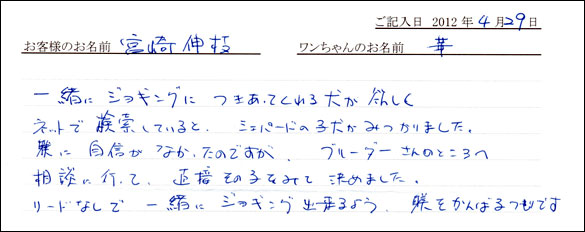 ご記入日 2012年4月29日
お客様のお名前 宮崎伸枝 ワンちゃんのお名前 華
一緒に ジョギングに つきあってくれる犬が欲しく
ネットで検索していると、シェパードの子犬がみつかりました。
躾に 自信がなかったのですが、ブリーダーさんのところへ
相談に行って、直接その子をみて決めました。
リードなしで 一緒に ジョギング出来るよう、躾をがんばるつもりです